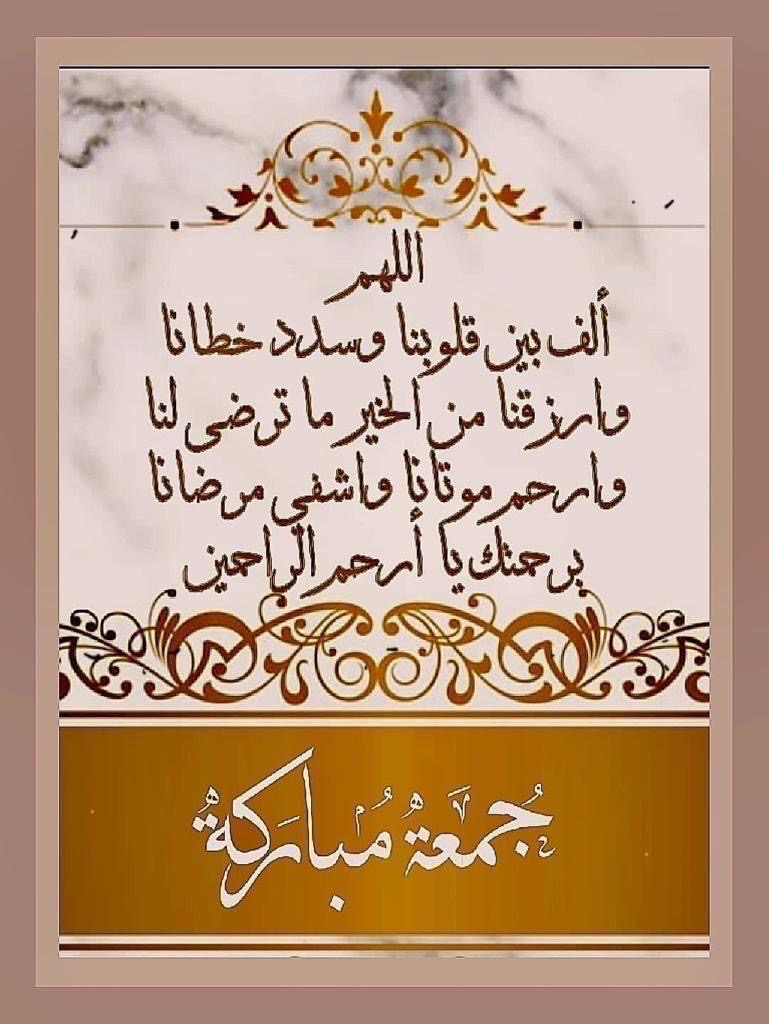 اللهم
ألف بين قلوبنا وسدد خطانا
وارزقنا من الخير ما ترضى لنا
وارحم موتانا واشفي مرضانا
برحمتك يا أرحم الراحمين
جُمعَةٌ مُباركَةٌ